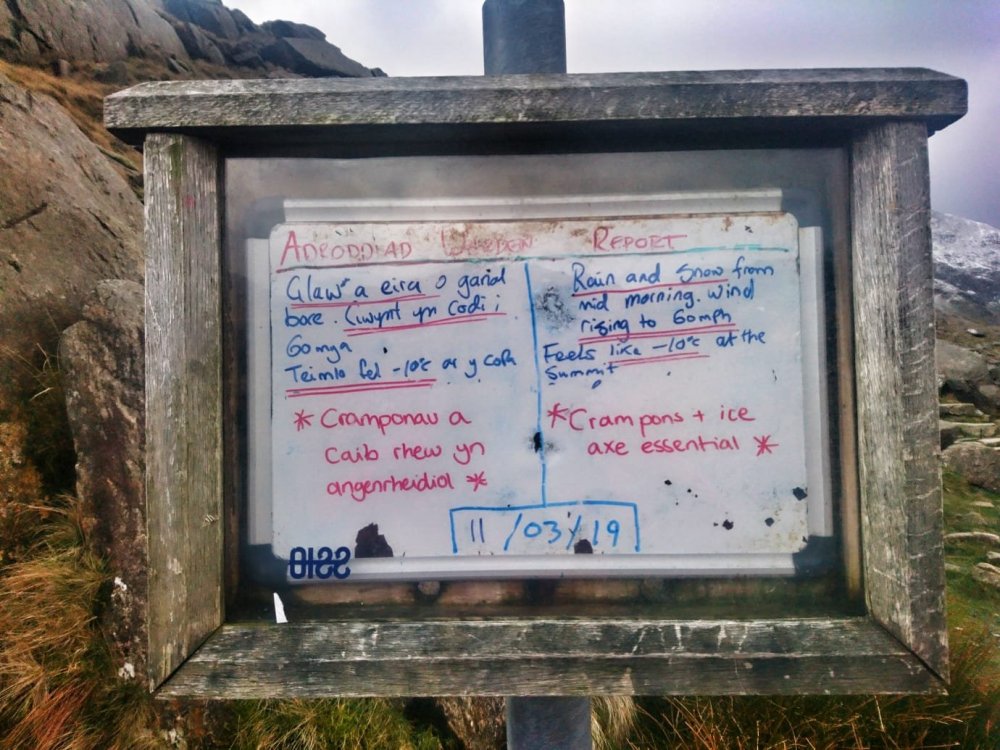 ADRODDIAD WARDEN REPORT
Glaw a eira o ganol
bore. Gwynt yn Codi i
60mya
Teimlo fel -10°c ar y copa
* Cramponau a
caib rhew yn
angenrheidiol *
Rain and Snow from
mid morning. Wind
rising to 60mph
Feels like -10°c at the
Summit
* Crampons + ice
axe essential *
11/03/19